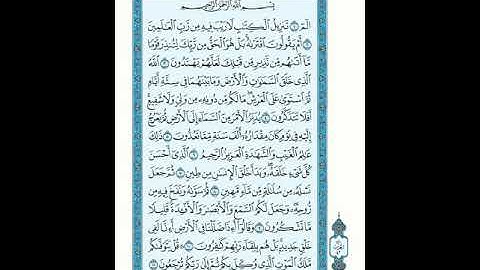 بِسْمِ ٱللَّهِ ٱلرَّحْمَٰنِ ٱلرَّحِيمِ
الٓمٓ ١ تَنزِيلُ ٱلْكِتَٰبِ لَا رَيْبَ فِيهِ مِن رَّبِّ ٱلْعَٰلَمِينَ
٢ أَمْ يَقُولُونَ ٱفْتَرَىٰهُ بَلْ هُوَ ٱلْحَقُّ مِن رَّبِّكَ لِتُنذِرَ قَوْمًا
مَّآ أَتَىٰهُم مِّن نَّذِيرٍ مِّن قَبْلِكَ لَعَلَّهُمْ يَهْتَدُونَ ٣ ٱللَّهُ
ٱلَّذِى خَلَقَ ٱلسَّمَٰوَٰتِ وَٱلْأَرْضَ وَمَا بَيْنَهُمَا فِى سِتَّةِ أَيَّامٍ
ثُمَّ ٱسْتَوَىٰ عَلَى ٱلْعَرْشِ مَا لَكُم مِّن دُونِهِۦ مِن وَلِىٍّ وَلَا شَفِيعٍ
أَفَلَا تَتَذَكَّرُونَ ٤ يُدَبِّرُ ٱلْأَمْرَ مِنَ ٱلسَّمَآءِ إِلَى ٱلْأَرْضِ ثُمَّ يَعْرُجُ
إِلَيْهِ فِى يَوْمٍ كَانَ مِقْدَارُهُۥٓ أَلْفَ سَنَةٍ مِّمَّا تَعُدُّونَ ٥ ذَٰلِكَ
عَٰلِمُ ٱلْغَيْبِ وَٱلشَّهَٰدَةِ ٱلْعَزِيزُ ٱلرَّحِيمُ ٦ ٱلَّذِىٓ أَحْسَنَ
كُلَّ شَىْءٍ خَلَقَهُۥ وَبَدَأَ خَلْقَ ٱلْإِنسَٰنِ مِن طِينٍ ٧ ثُمَّ جَعَلَ
نَسْلَهُۥ مِن سُلَٰلَةٍ مِّن مَّآءٍ مَّهِينٍ ٨ ثُمَّ سَوَّىٰهُ وَنَفَخَ فِيهِ مِن
رُّوحِهِۦ وَجَعَلَ لَكُمُ ٱلسَّمْعَ وَٱلْأَبْصَٰرَ وَٱلْأَفْـِٔدَةَ قَلِيلًا
مَّا تَشْكُرُونَ ٩ وَقَالُوٓا۟ أَءِذَا ضَلَلْنَا فِى ٱلْأَرْضِ أَءِنَّا لَفِى
خَلْقٍ جَدِيدٍۭ بَلْ هُم بِلِقَآءِ رَبِّهِمْ كَٰفِرُونَ ١٠ قُلْ يَتَوَفَّىٰكُم
مَّلَكُ ٱلْمَوْتِ ٱلَّذِى وُكِّلَ بِكُمْ ثُمَّ إِلَىٰ رَبِّكُمْ تُرْجَعُونَ ١١